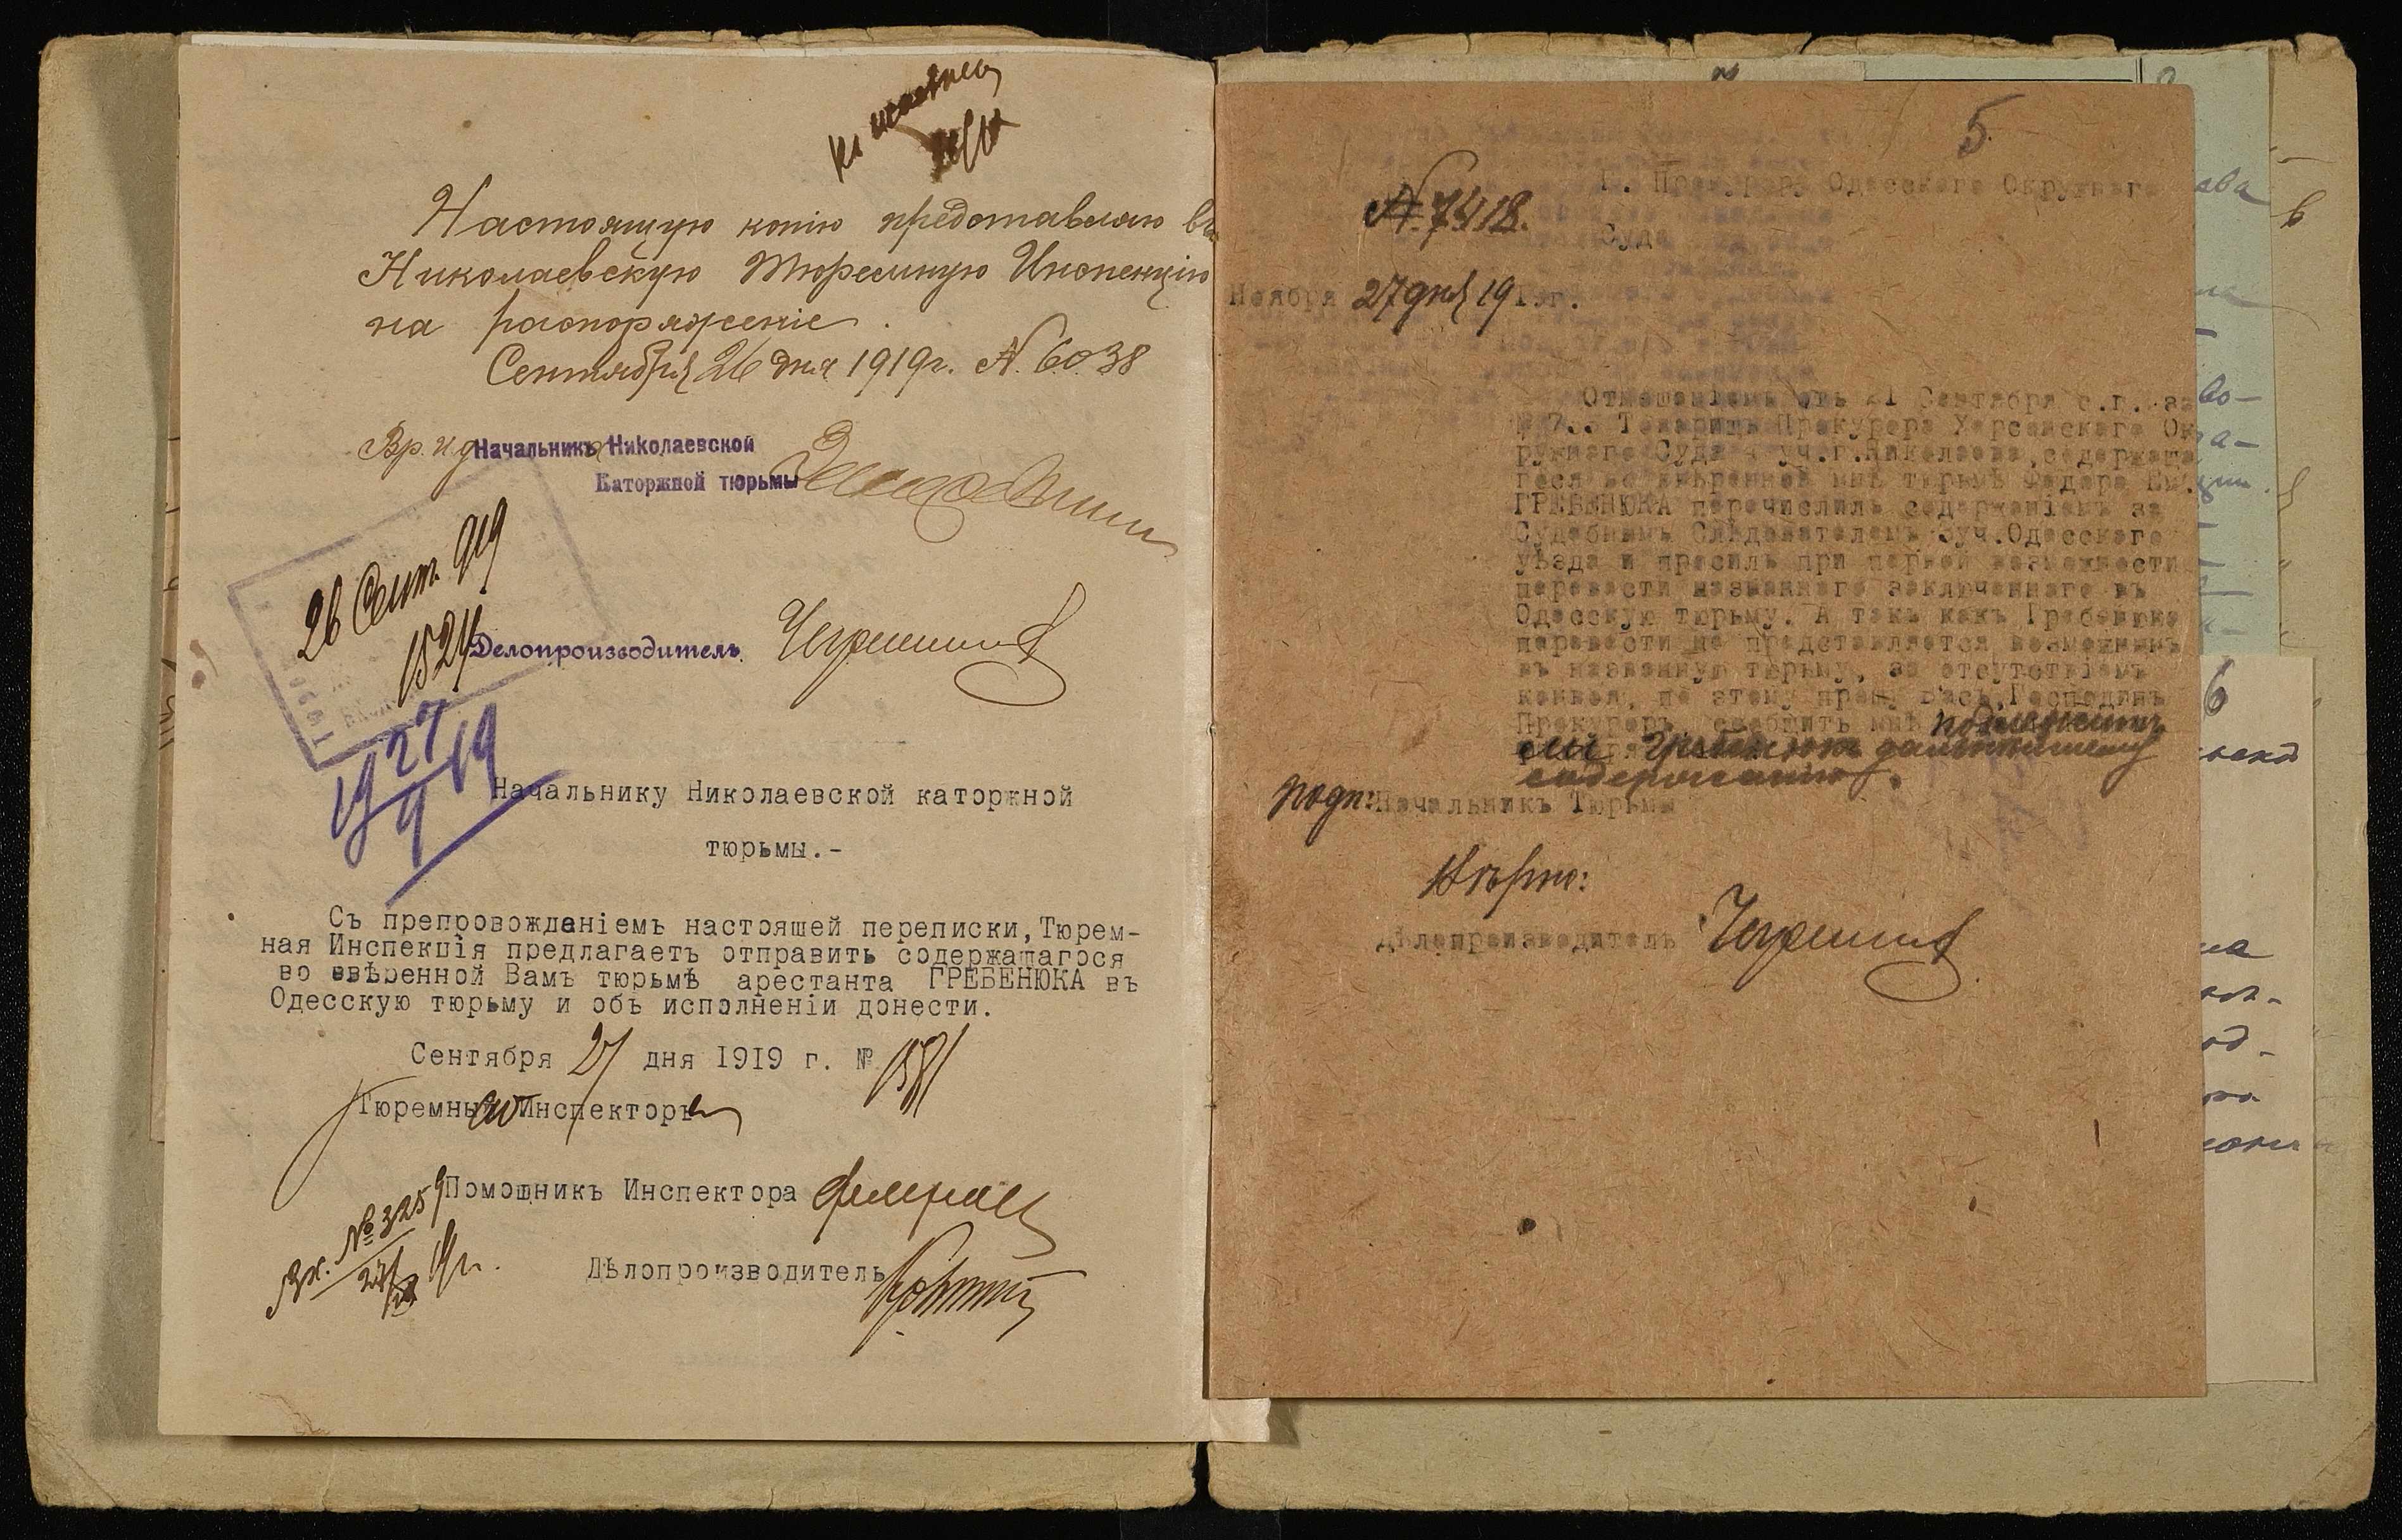 Настоящую копію представляю въ
Николаевскую Тюремную Инспекцію
на распоряженіе.
Сентября 26 дня 1919г. N. 6038
Вр. и. д. Начальника Николаевской
Каторжной тюрьмы
26 Сент. 919
1524
Делопроизводитель
27
9 19
Начальнику Николаевской каторжной
тюрьмы.-
Съ препровожденіемъ настоящей переписки, Тюрем-
ная Инспекція предлагаетъ отправить содержащагося
во ввѣренной Вамъ тюрьмѣ арестанта ГРЕБЕНЮКА въ
Одесскую тюрьму и объ исполненіи донести.
Сентября 27 дня 1919 г. №
Тюремный Инспекторъ
Помощникъ Инспектора
Вх. № 3259
19г.
Дѣлопроизводитель
5.
Г. Прокурору Одесскаго Окружнаго
N 7418.
Суда
Ноября 27 дня 1919г.
Отношеніемъ отъ 21 Сентября с.г. за
Товарищъ Прокурора Херсонскаго Ок
ружнаго Суда уч.г.Николаева, содержаща
гося во ввѣренной мнѣ тюрьмѣ Федора Ем.
ГРЕБЕНЮКА перечислилъ содержаніемъ за
Судебнымъ Слѣдователемъ 3уч.Одесскаго
уѣзда и просилъ при первой возможности
перевести названнаго заключеннаго въ
Одесскую тюрьму. А такъ какъ Гребенюка
перевести не представляется возможнымъ
въ названную тюрьму, за отсутствіемъ
конвоя, по этому прошу Васъ, Господинъ
Прокуроръ, сообщить мнѣ подлежитъ
ли Гребенюкъ дальнѣйшему
содержанію.
подп: Начальникъ Тюрьмы
Вѣрно:
Дѣлопроизводитель
6